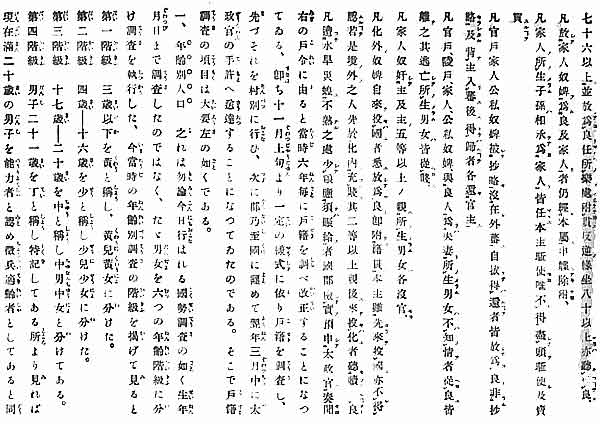 七十六以上並放爲良任所樂處附貫反逆緣坐八十以上亦聽從良
凡放家人奴婢爲良及家人者仍經本屬申牒除附
凡家人所生子孫相承爲家人皆任本主驅使唯不得盡頭驅使及賣
買
凡官戶陵戶家人公私奴婢被抄略沒在外蕃自拔得還者皆放爲良非抄
略及背主入蕃後得歸者各還官主
凡官戶陵戶家人公私奴婢與良人爲夫妻所生男女不知情者從良皆
離之其逃亡所生男女皆從賤
凡家人奴姧主及主五等以上ノ親所生男女各沒官
凡化外奴婢自來投國者悉放爲良卽附籍貫本主雖先來投國亦不得
認若是境外之人先於化內充賤其二等以上親後來投化者聽贖 良
凡遭水旱災蝗不熟之處少糧應須賑給者國郡檢實預申太政官奏聞
右の戶令に由ると當時六年每に戶籍を調べ改正することになつ
てゐる、卽ち十一月上旬より一定の樣式に依り戶籍を調査し、
先づそれを村別に行ひ、次に郡乃至國に纒めて翌年三月中に太
政官の手許へ送達することになつてゐたのである。そこで戶籍
調査の項目は大要左の如くである。
一、年齡別人口。之れは勿論今日行はれる國勢調査の如く生年
月日まで調査したのではなく、たゞ男女を六つの年齡階級に分
け調査を執行した、今當時の年齡別調査の階級を揭げて見ると
第一階級 三歲以下を黃と稱し、黃兒黃女に分けた。
第二階級 四歲―十六歲を少と稱し少兒少女に分けた。
第三階級 十七歲―二十歲を中と稱し中男中女と分けてある。
第四階級 男子二十一歲を丁と稱し特記してある所より見れば
現在滿二十歲の男子を能力者と認め徵兵適齡者としてあると同